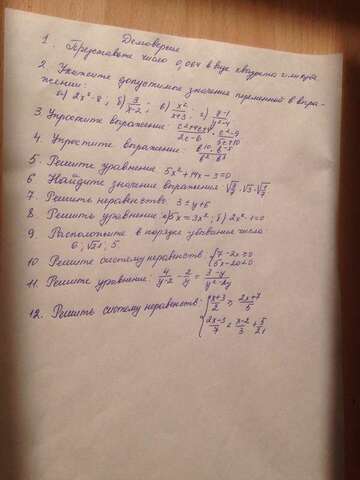 Демоверсия
1. Представьте число 0,064 в виде квадрата или куба
2. Укажите допустимые значения переменной в выра-
жении:
а) 2x²-8; б) 3/x-2; в) x²/x+3; г)
3. Упростите выражение:
4. Упростите выражение:
5. Решите уравнение 5x²+14x-3=0
6 Найдите значение выражения
7. Решить неравенство 3≤y+6
8 Решить уравнение: а) 5x=3x²; б) 2x²-1=0
9. Расположите в порядке убывания числа:
6; √31; 5
10 Решить систему неравенств: {7-2x≥0
11 Решите уравнение: 4/y-2 - 2/y = 3-y/y²-2y
12. Решить систему неравенств:
2x-3/7 < x-2/3 + 5/21